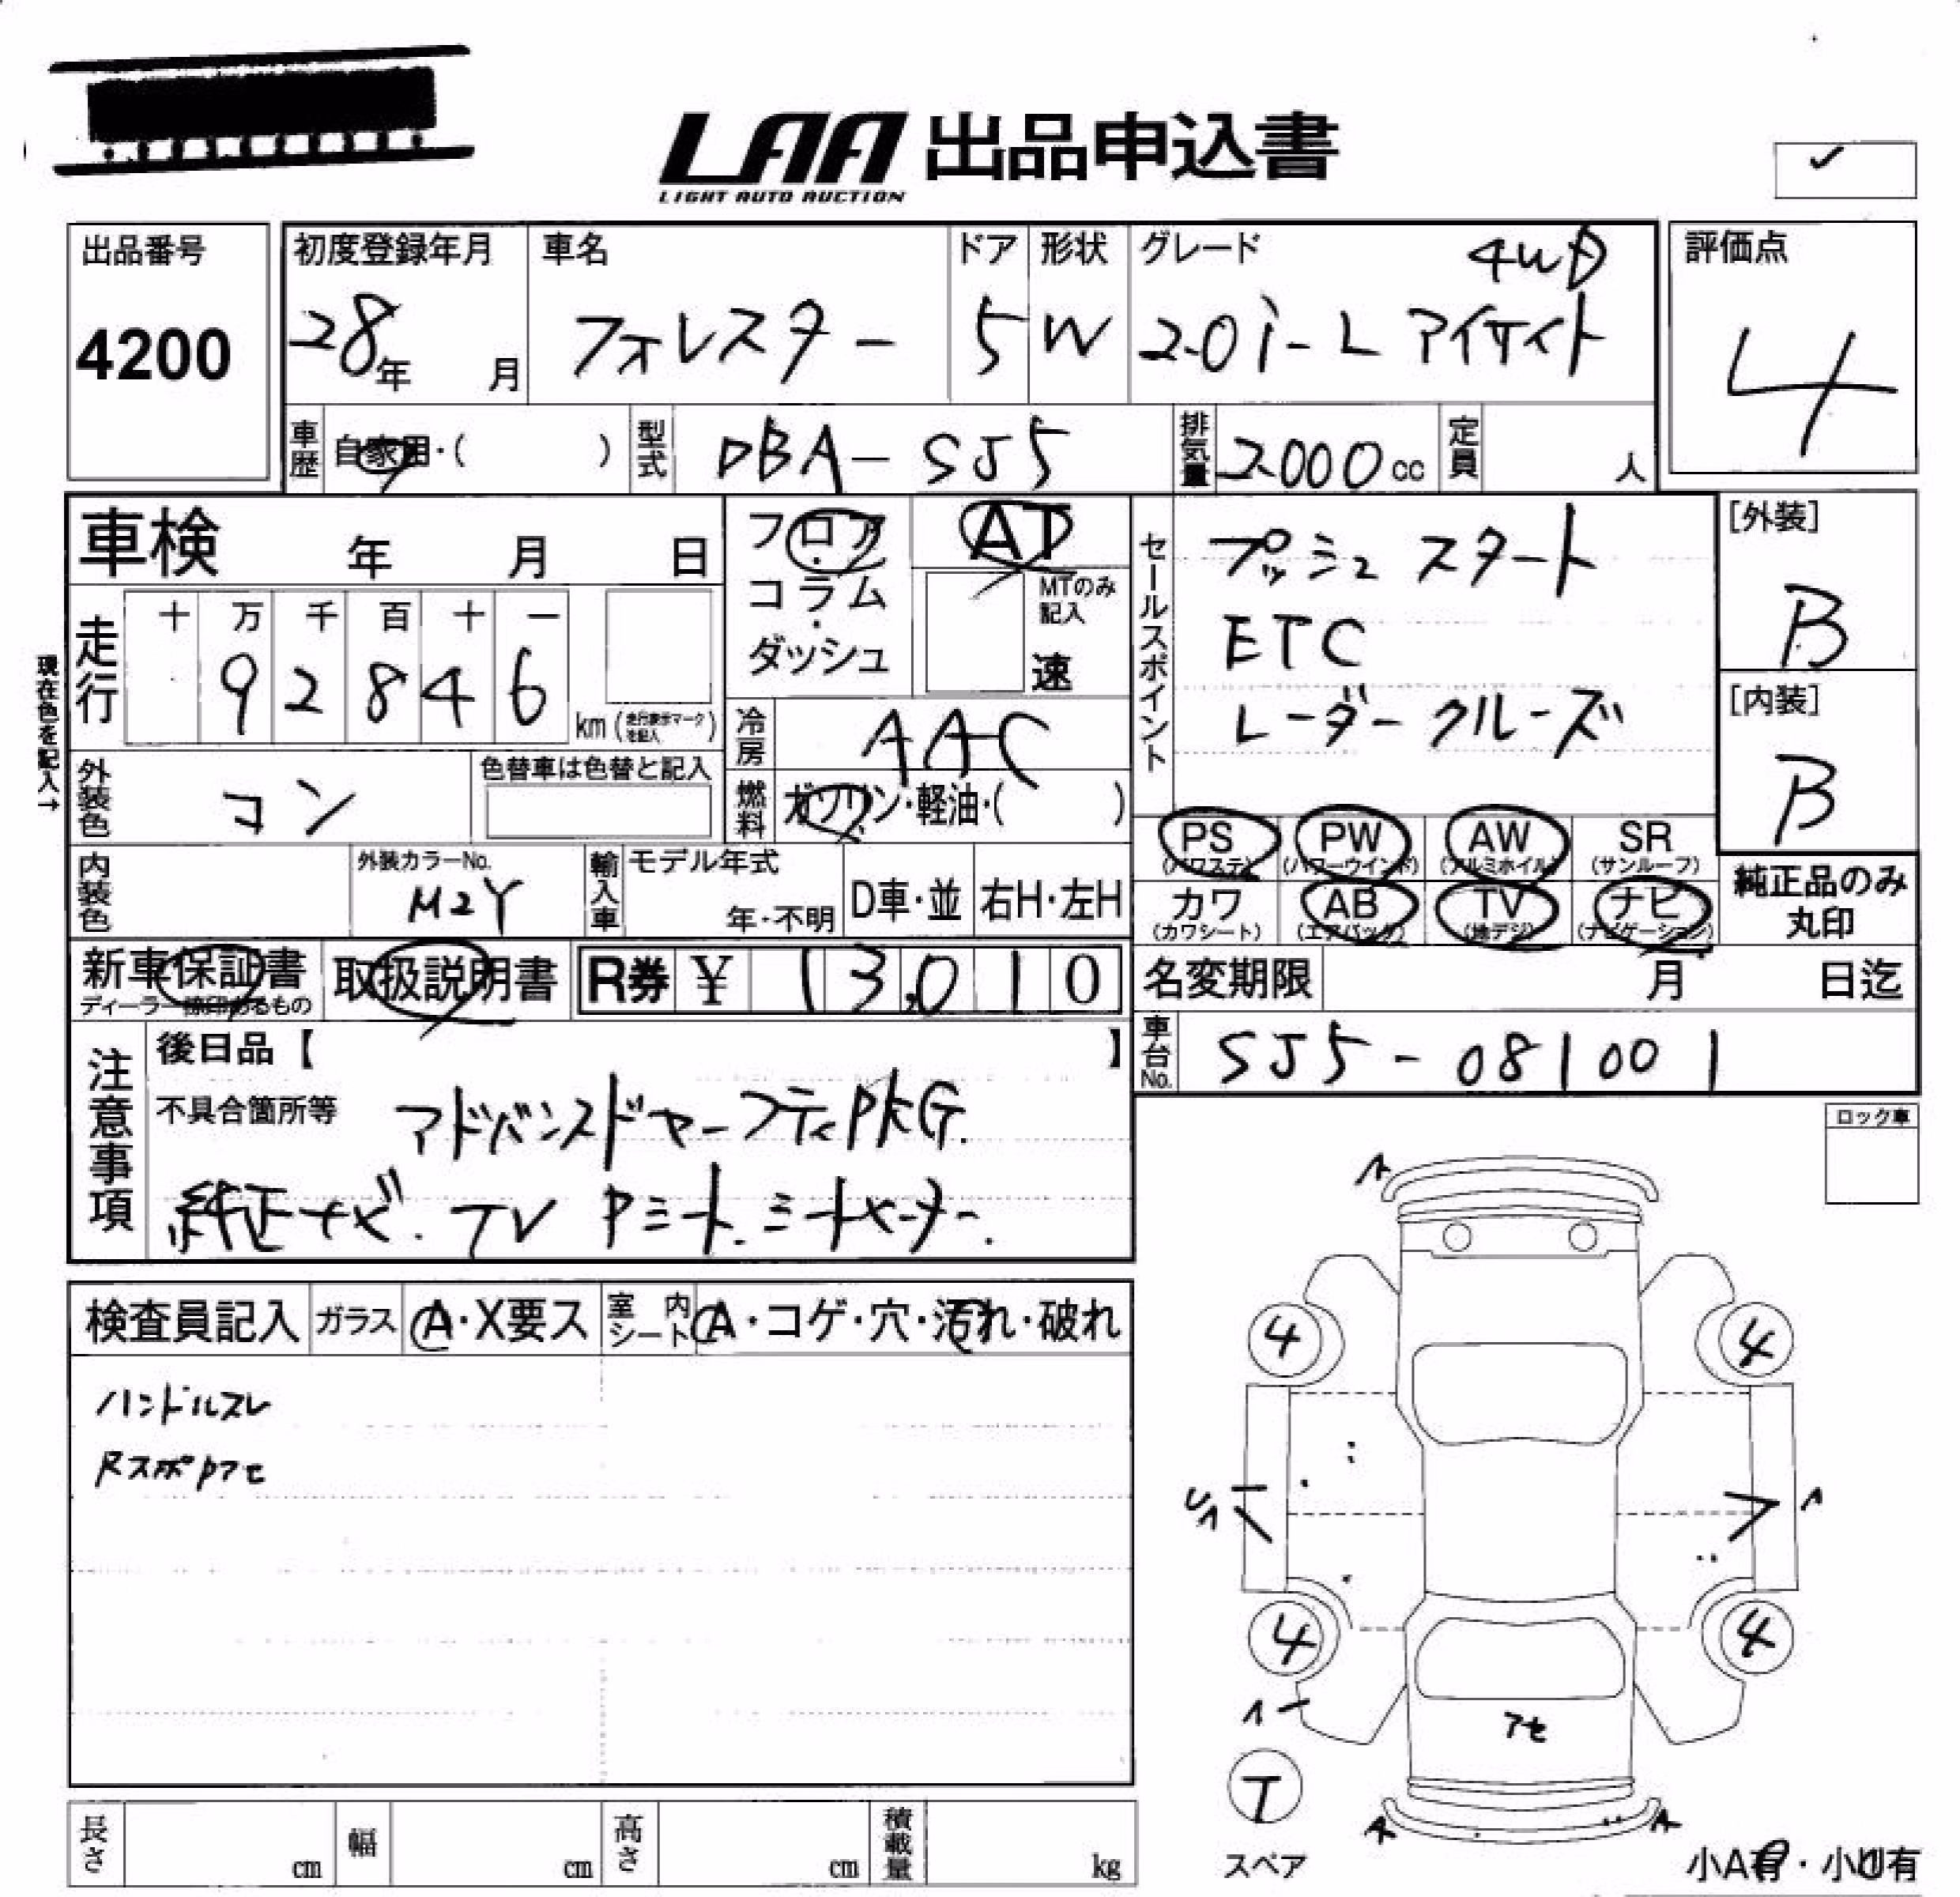 LAA 出品申込書
LIGHT AUTO AUCTION
出品番号
4200
初度登録年月
28年 月
車名
フォレスター
ドア
5
形状
W
グレード 4WD
2.0i-L アイサイト
評価点
4
車歴 自家用・( )
型式 DBA-SJ5
排気量 2000cc
定員 人
車検 年 月 日
走行 十 万 千 百 十 一
92846 km (走行表示マークを記入)
現在色を記入→
外装色 コン
色替車は色替と記入
内装色
外装カラーNo.
M2Y
輸入車 モデル年式
年・不明
D車・並
右H・左H
フロア・コラム・ダッシュ
AT
MTのみ記入
速
冷房 AAC
燃料 ガソリン・軽油・( )
セールスポイント
プッシュスタート
ETC
レーダークルーズ
[外装]
B
[内装]
B
PS (パワステ)
PW (パワーウインド)
AW (アルミホイル)
SR (サンルーフ)
カワ (カワシート)
AB (エアバック)
TV (地デジ)
ナビ (ナビゲーション)
純正品のみ丸印
新車保証書
ディーラー捺印あるもの
取扱説明書
R券 ¥ 13,010
名変期限 月 日迄
車台No. SJ5-081001
注意事項
後日品【 】
不具合箇所等 アドバンスドセーフティPKG.
純正ナビ.TV Pシート.シートヒーター.
ロック車
検査員記入
ガラス A・X要ス
室内シート A・コゲ・穴・汚れ・破れ
ハンドルスレ
RスポPアセ
A
4 4
UA
A
4 4
A
アセ
T
スペア
A A
小A有・小U有
長さ cm
幅 cm
高さ cm
積載量 kg